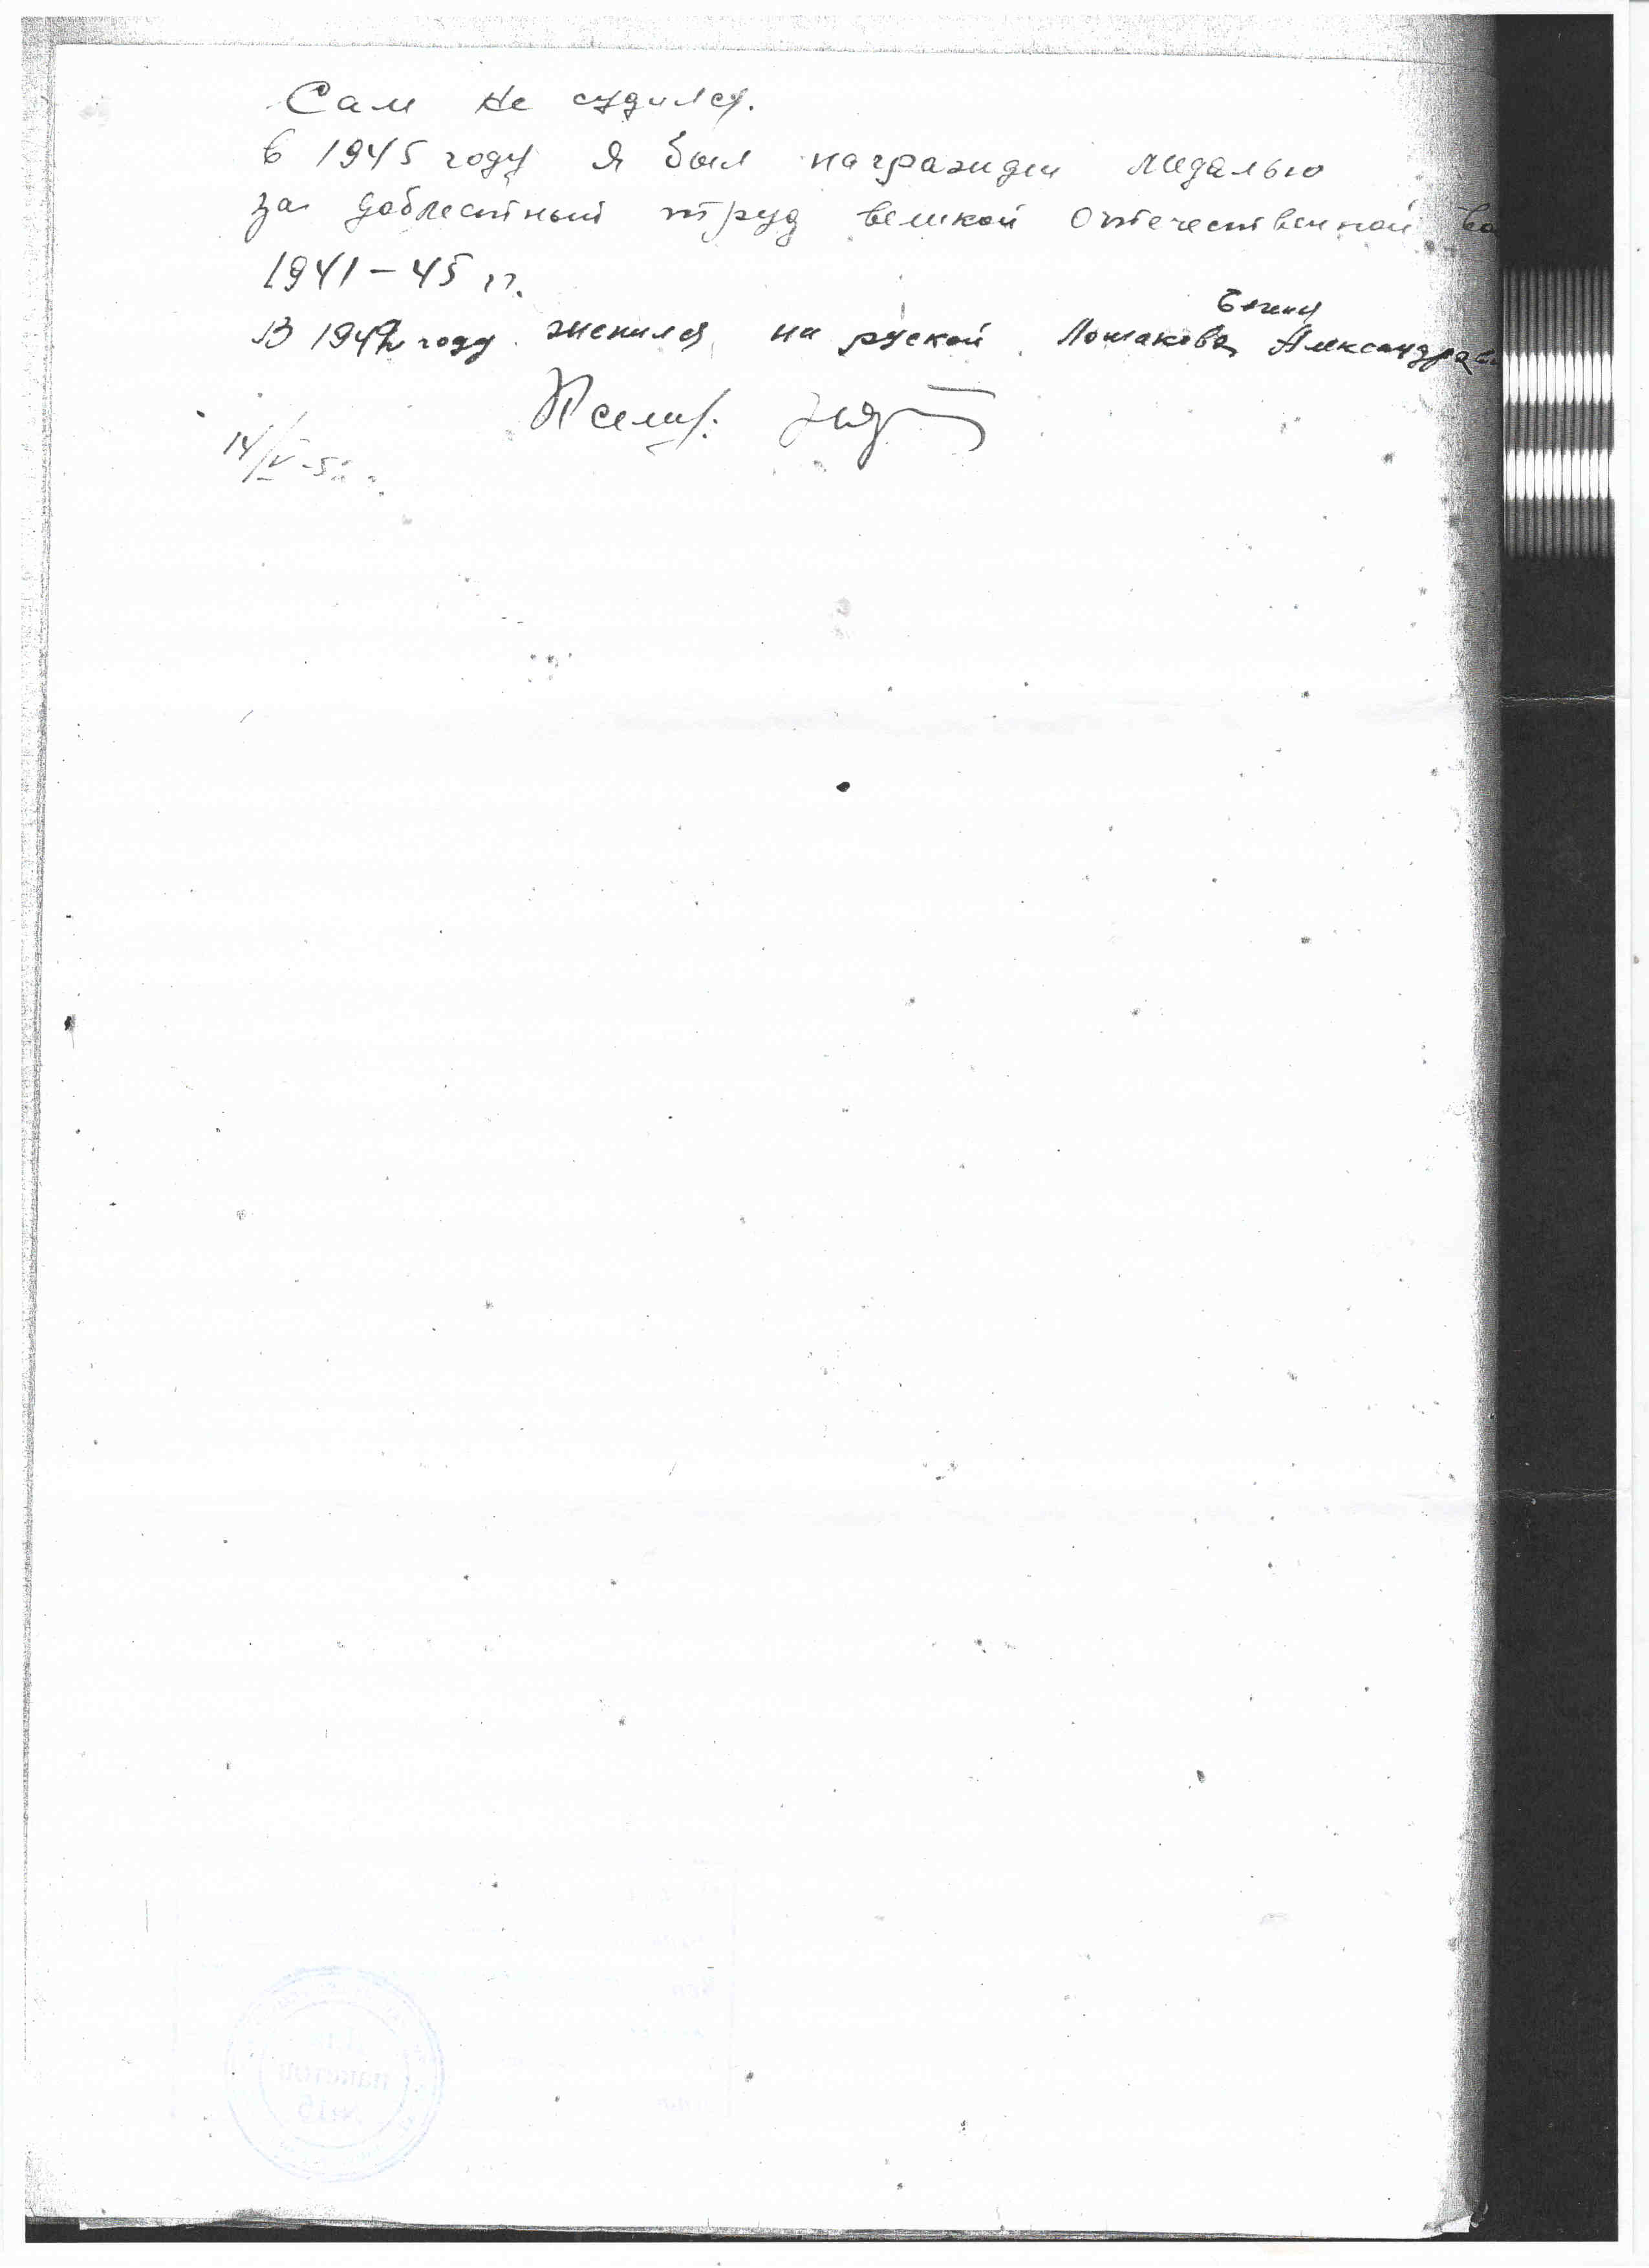 Сам не судился.
в 1945 году я был награжден медалью
за доблестный труд великой отечественной во
1941-45 гг.
В 194 году женился на руской Лошакова Александра
14/V-5